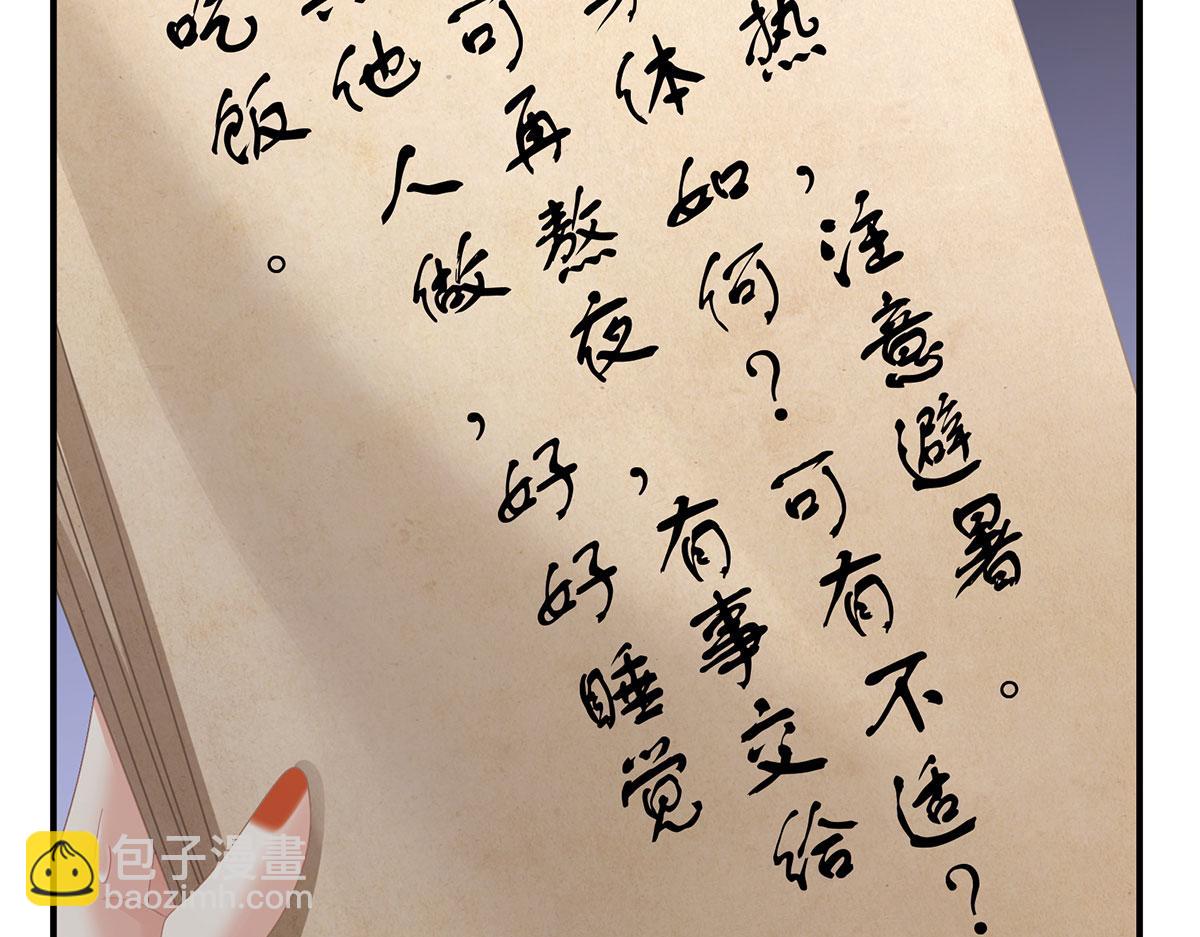 热，注意避暑。
体如何？可有不适？
可再熬夜，有事交给
他人做，好好睡觉
吃饭。
包子漫畫
baozimh.com